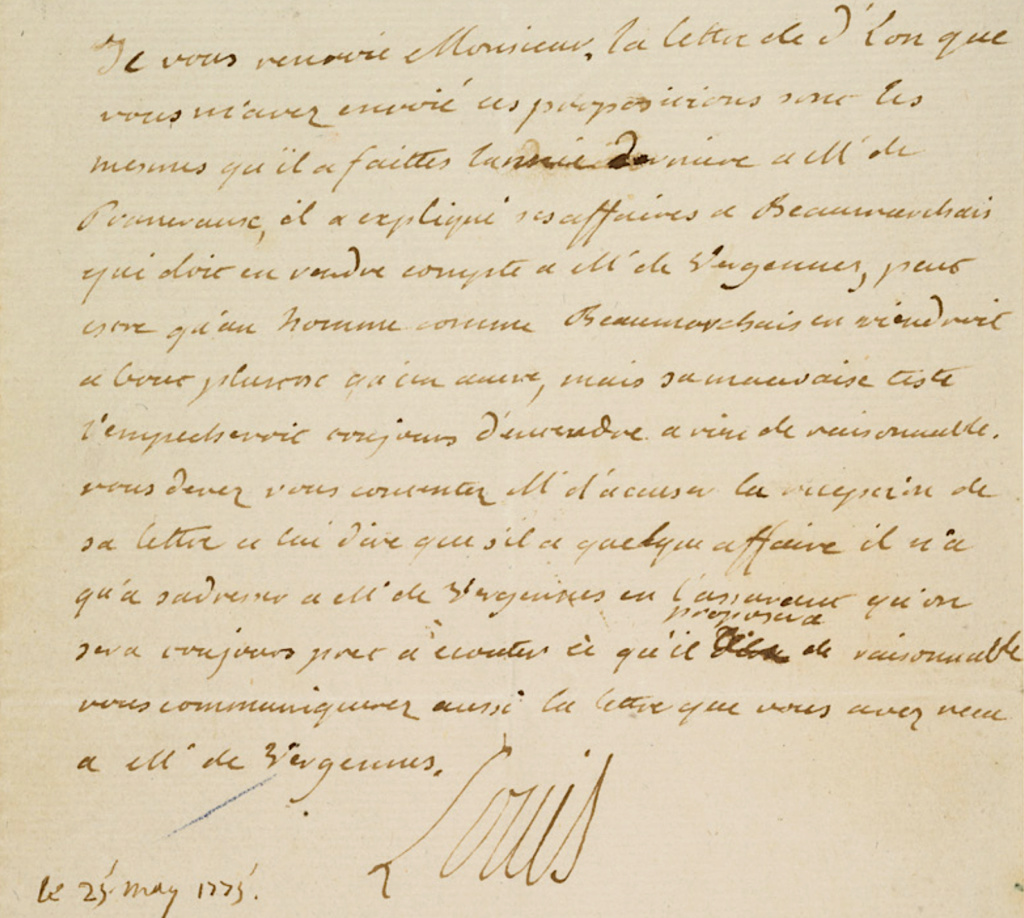 Je vous renvoie Monsieur, la lettre de d'Eon que
vous m'avez envoié ses propositions sont les
mesmes qu'il a faittes lannée derniere a Mr de
Pommereux, il a expliqué ses affaires a Beaumarchais
qui doit en rendre compte a Mr de Vergennes, peut
estre qu'un homme comme Beaumarchais en viendroit
a bout plustost qu'un autre, mais sa mauvaise teste
l'empecheroit toujours d'entendre a rien de raisonnable.
vous devez vous contenter Mr d'acuser la reception de
sa lettre et lui dire que s'il a quelque affaire il n'a
qu'a sadresser a Mr de Vergennes en l'assurant qu'on
sera toujours pret à écouter ce qu'il proposera de raisonnable
vous communiquerez aussi la lettre que vous avez recu
a Mr de Vergennes.
Louis
le 25 may 1775.